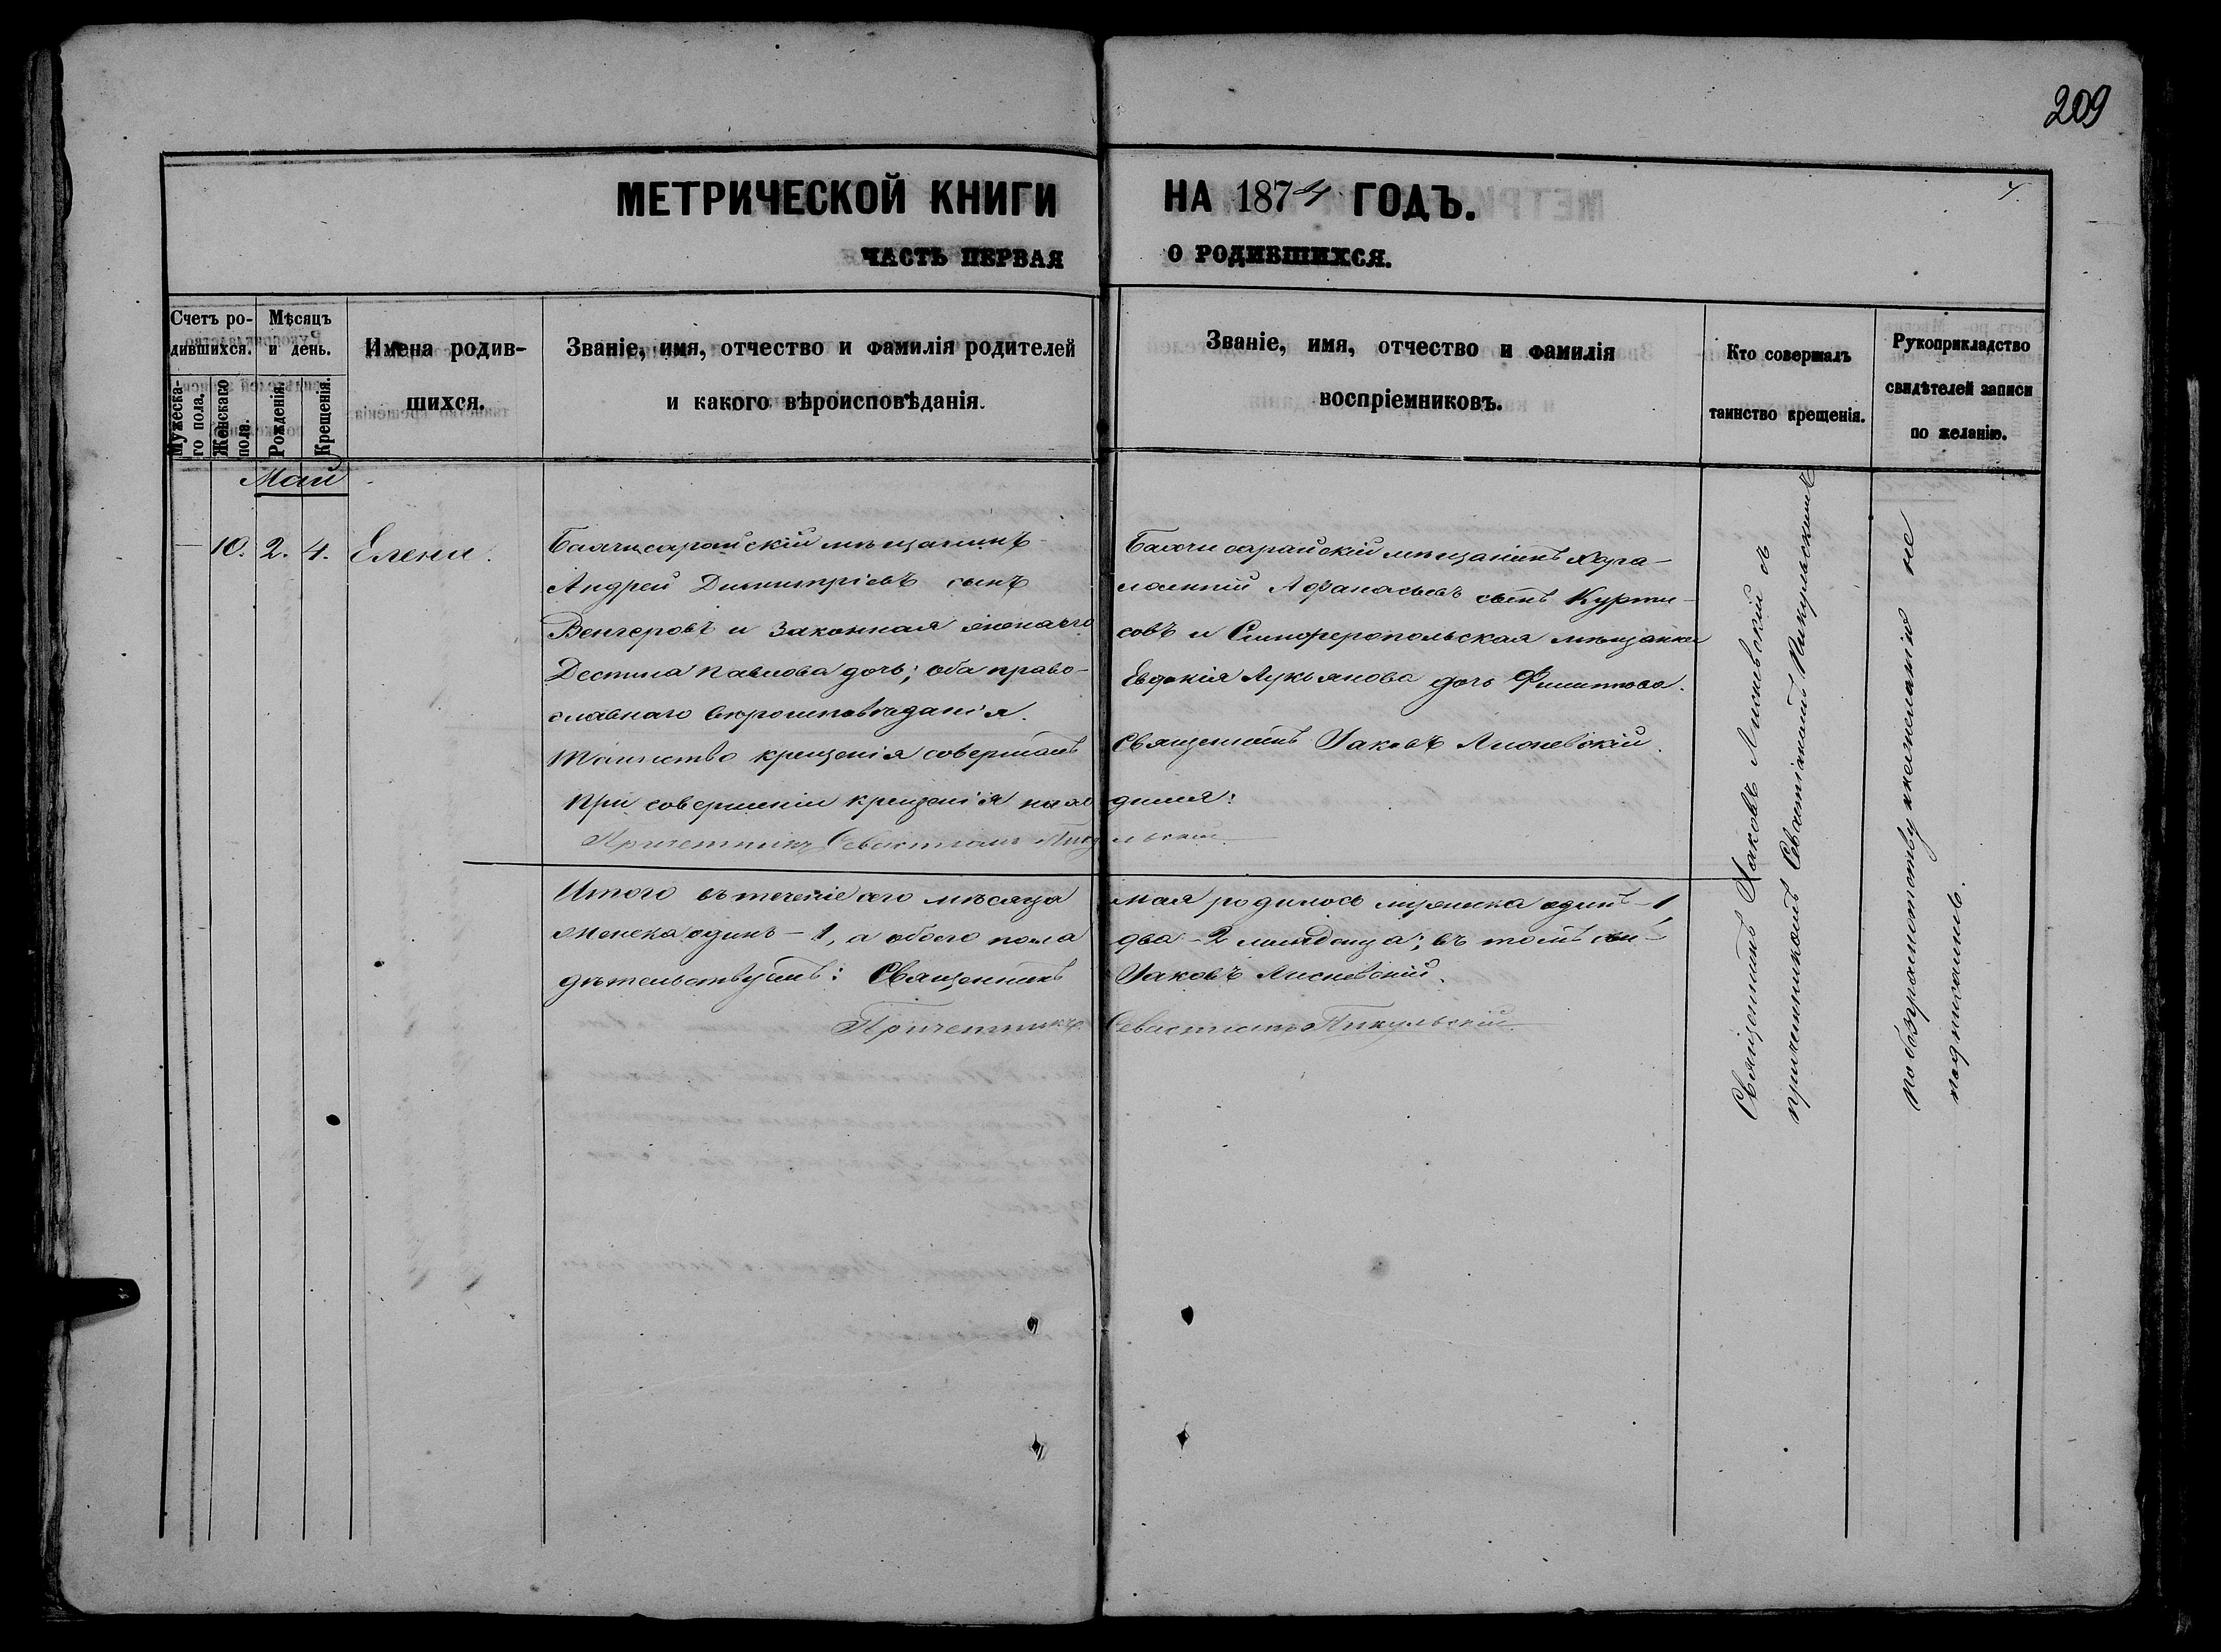 209
МЕТРИЧЕСКОЙ КНИГИ НА 1874 ГОДЪ.
ЧАСТЬ ПЕРВАЯ О РОДИВШИХСЯ.
Счетъ ро-
дившихся.
Мужеска-
го пола.
Женскаго
пола.
Мѣсяцъ
и день.
Рожденія.
Крещенія.
Имена родив-
шихся.
Званіе, имя, отчество и фамилія родителей
и какого вѣроисповѣданія.
Званіе, имя, отчество и фамилія
воспріемниковъ.
Кто совершалъ
таинство крещенія.
Рукоприкладство
свидѣтелей записи
по желанію.
Май
— 10. 2. 4. Елени.
Бахчисарайскій мѣщанинъ
Андрей Димитріевъ сынъ
Венгеровъ и законная жена его
Деспина Павлова дочь; оба право-
славнаго вѣроисповѣданія.
Таинство крещенія совершалъ Священникъ Іаковъ Лисневскій.
При совершеніи крещенія находился:
Причетникъ Севастіанъ Пикульскій
Бахчисарайскій мѣщанинъ
Афанасьевъ сынъ Курти-
совъ и Симферопольская мѣщанка
Евдокія Лукьянова дочь Филиппова.
Священникъ Іаковъ Лисневскій съ
причетникомъ Севастіаномъ Пикульскимъ
По безграмотству и нежеланію не
подписались.
Итого въ теченіе сего мѣсяца мая родилось мужеска одинъ - 1,
женска одинъ - 1, а обоего пола два - 2 младенца; въ томъ сви-
дѣтельствуемъ: Священникъ Іаковъ Лисневскій.
Причетникъ Севастіанъ Пикульскій